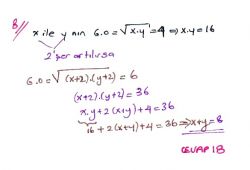 8.
x ile y nin G.O = √x.y = 4 ⇒ x.y = 16
2'şer artılırsa
G.O = √(x+2).(y+2) = 6
(x+2).(y+2) = 36
x.y + 2(x+y) + 4 = 36
16 + 2(x+y) + 4 = 36 ⇒ x+y = 8
CEVAP 18